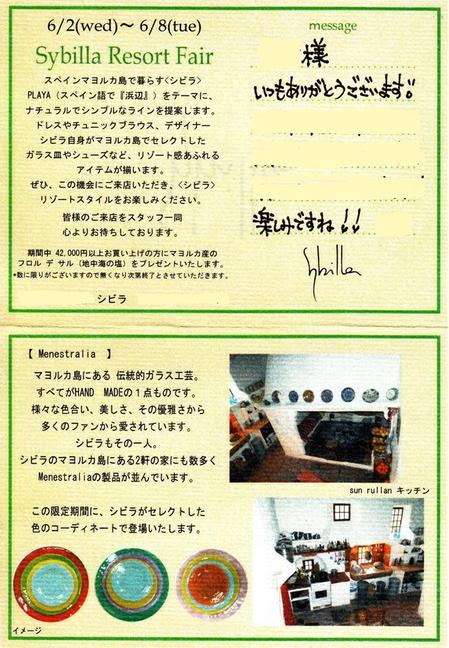 6/2(wed)～ 6/8(tue)
Sybilla Resort Fair
スペインマヨルカ島で暮らす<シビラ>
PLAYA（スペイン語で『浜辺』）をテーマに、
ナチュラルでシンプルなラインを提案します。
ドレスやチュニックブラウス、デザイナー
シビラ自身がマヨルカ島でセレクトした
ガラス皿やシューズなど、リゾート感あふれる
アイテムが揃います。
ぜひ、この機会にご来店いただき、<シビラ>
リゾートスタイルをお楽しみください。
皆様のご来店をスタッフ一同
心よりお待ちしております。
期間中 42,000円以上お買い上げの方にマヨルカ産の
フロル デ サル（地中海の塩）をプレゼントいたします。
*数に限りがございますので無くなり次第終了とさせていただきます。
シビラ
message
様
いつもありがとうございます!!
楽しみですね!!
Sybilla
【 Menestralia 】
マヨルカ島にある 伝統的ガラス工芸。
すべてがHAND MADEの１点ものです。
様々な色合い、美しさ、その優雅さから
多くのファンから愛されています。
シビラもその一人。
シビラのマヨルカ島にある2軒の家にも数多く
Menestraliaの製品が並んでいます。
この限定期間に、シビラがセレクトした
色のコーディネートで登場いたします。
イメージ
sun rullan キッチン